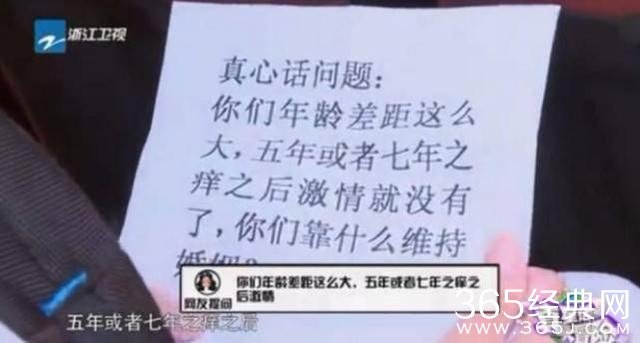 浙江卫视
真心话问题：
你们年龄差距这么
大，五年或者七年之
痒之后激情就没有
了，你们靠什么维持
网友提问
你们年龄差距这么大，五年或者七年之痒之
后激情
五年或者七年之痒之后
365经典网
www.365J.com